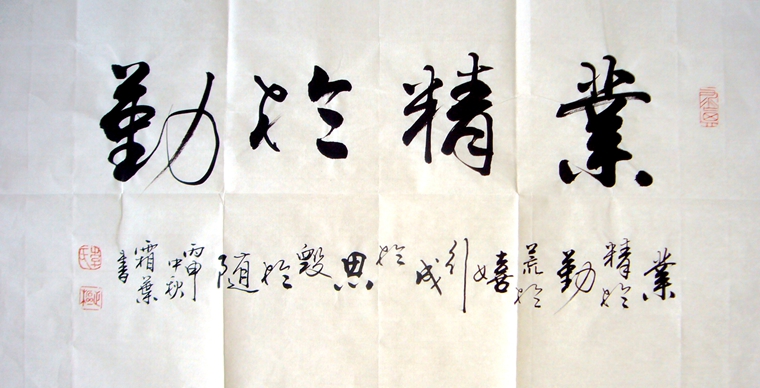 業精於勤
業精於勤荒於嬉行成於思毀於隨
丙申中秋霜葉書